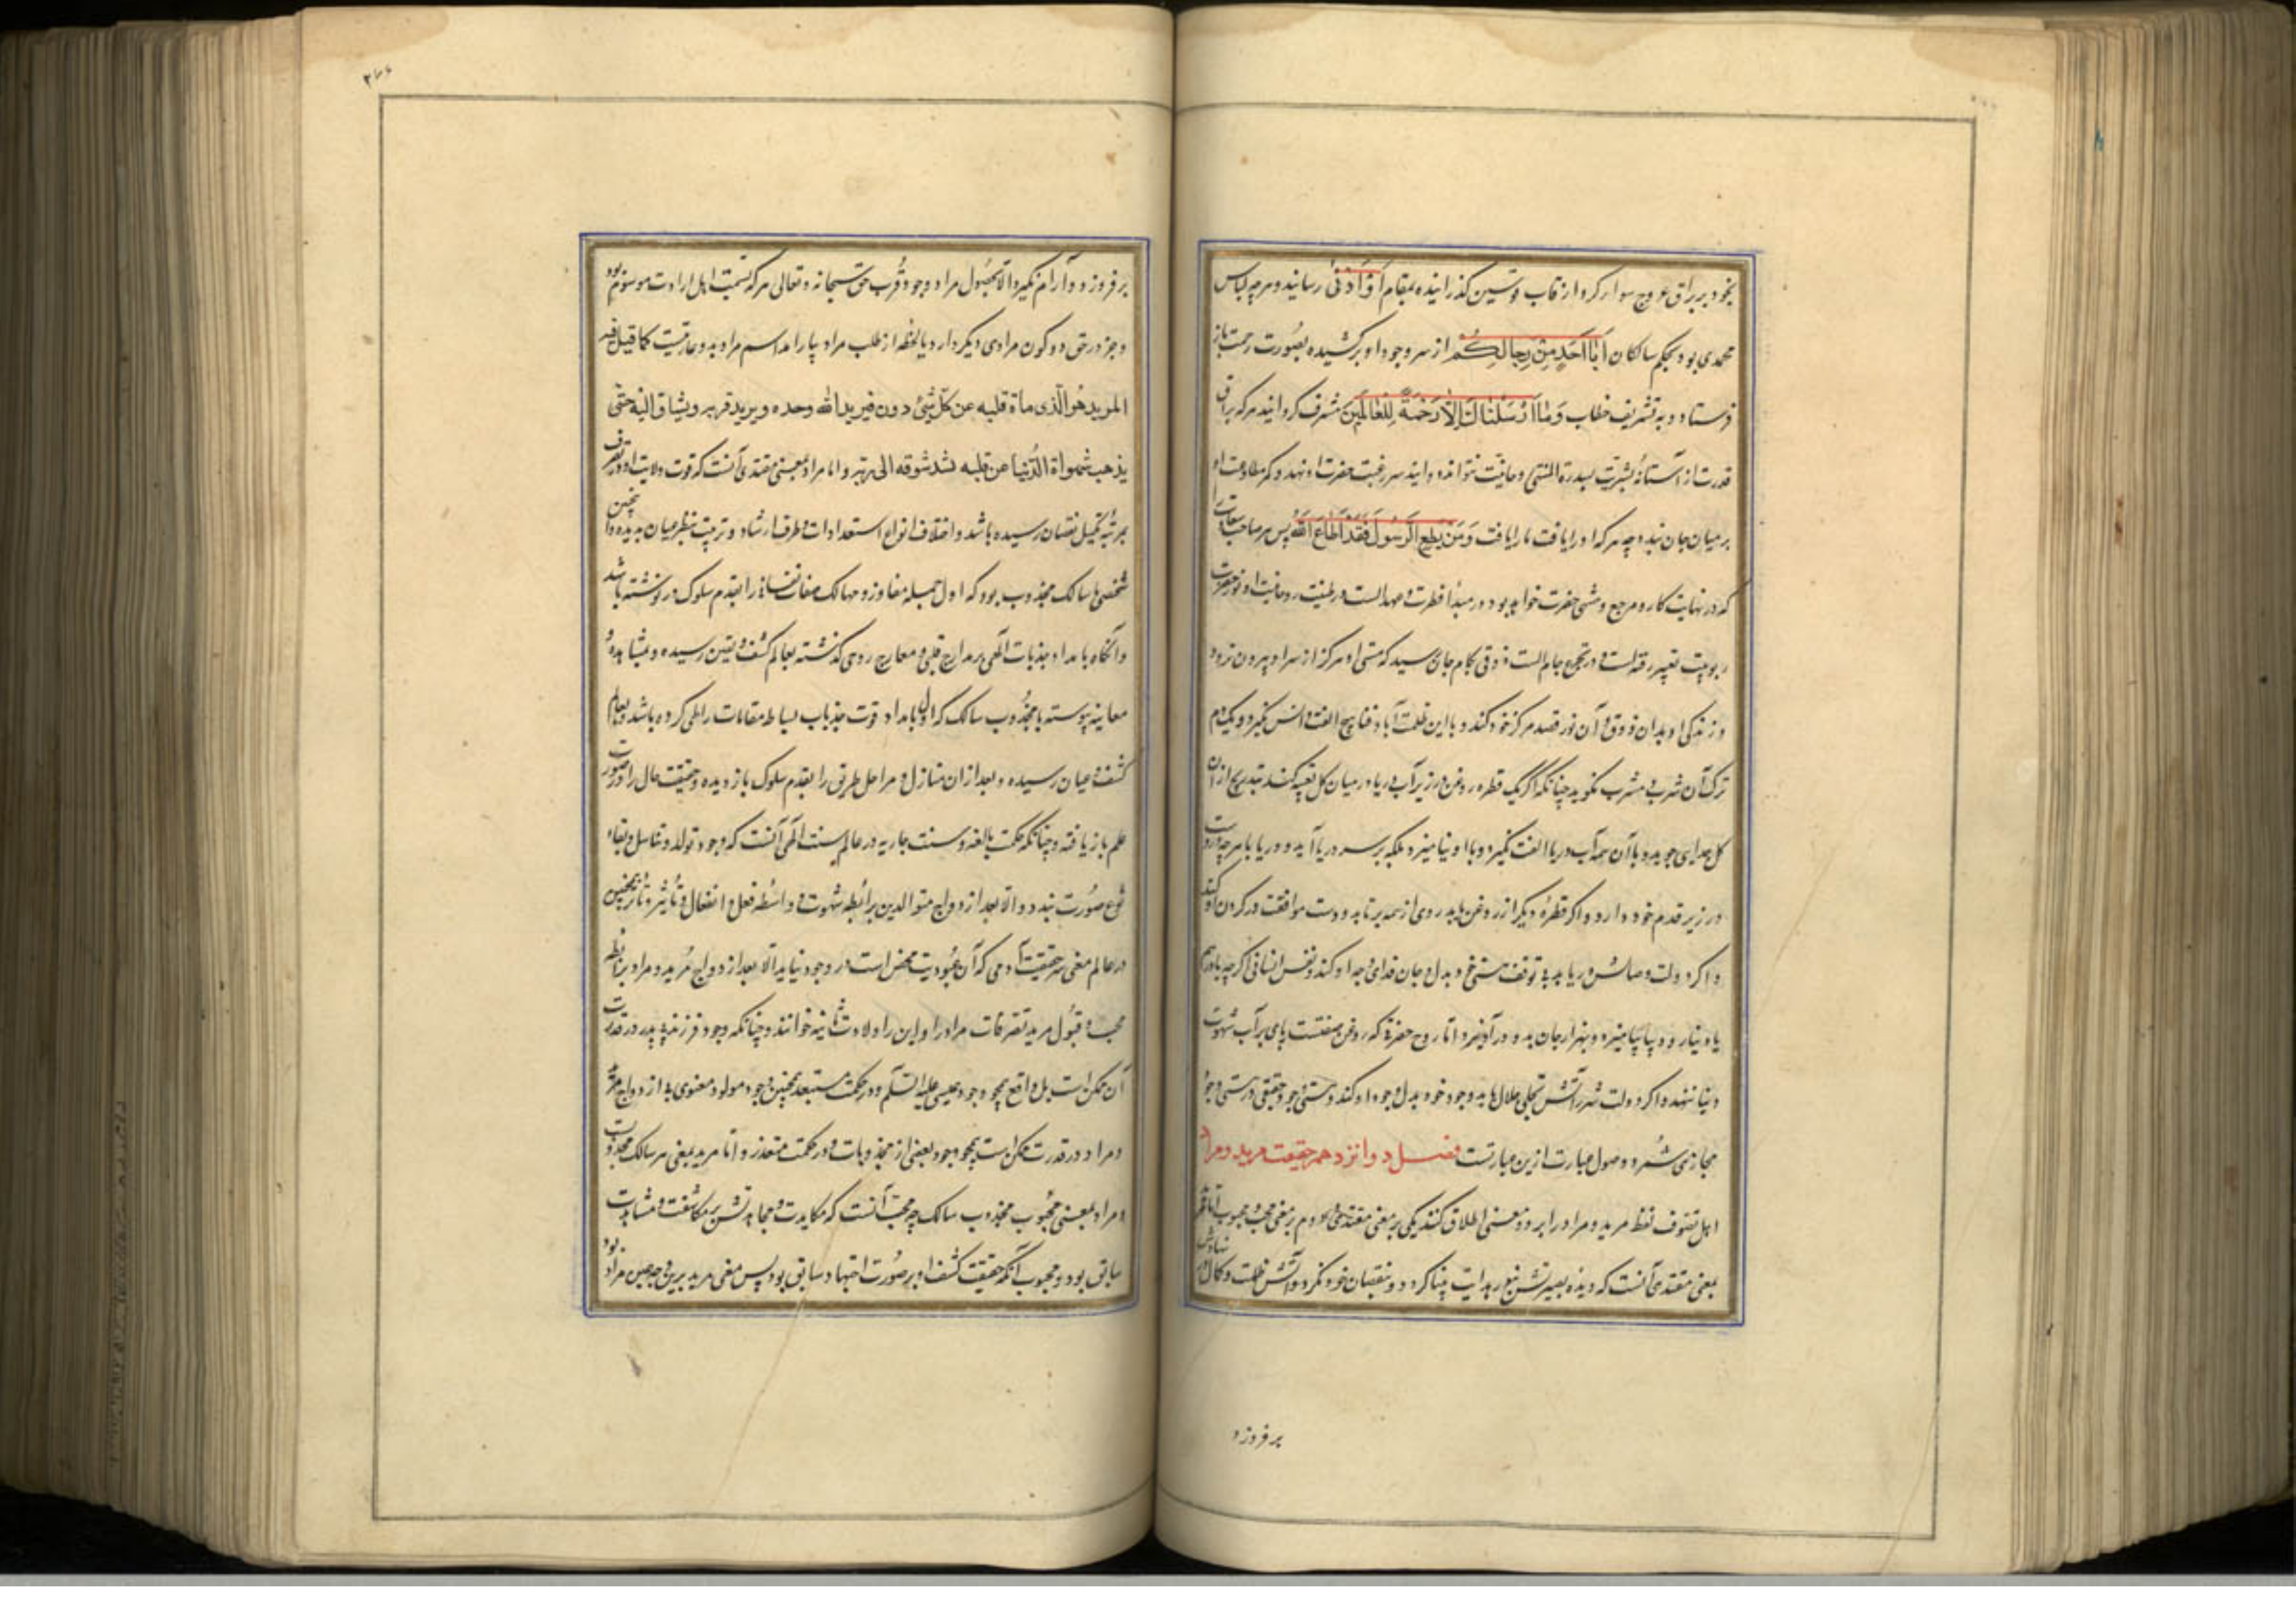 بخود بر براق عروج سوار کرد و از قاب قوسین گذرانیده بمقام أَوْ أَدْنىٰ رسانید و هرچه لباس
محمدی بود بحکم ساکنان أَبَا أَحَدٍ مِنْ رِجَالِكُمْ از سر وجود او برکشیده بصورت رحمت باز
فرستاد و به تشریف خطاب وَمَا أَرْسَلْنَاكَ إِلَّا رَحْمَةً لِلْعَالَمِينَ مشرف گردانید هرکه براق
قدرت از آستانه بشریت بسدرة المنتهی روحانیت نتواند دوانید سر رغبت حضرت او نهد و کمر مطاوعت او
بر میان جان بندد چه هرکه او را یافت ما را یافت وَمَنْ يُطِعِ الرَّسُولَ فَقَدْ أَطَاعَ اللهَ پس هر صاحب سعادت را
که در نهایت کار و مرجع و منتهی حضرت خواهد بود در مبدأ فطرت و عهد الست در طینت روحانیت او نور حضرت
ربوبیت تعبیه رفته است و در تجرع جام الست ذوقی بکام جان رسید که مستی او هرگز از سر او بیرون نرود
و زندگی او بدان ذوق و آن نور قصد مرکز خود کند و با این ظلمت آباد فنا هیچ الفت و انس نگیرد و یک دم
ترک آن شرب و مشرب نگوید چنانکه اگر یک قطره روغن در زیر آب دریا در میان گل تعبیه کنند بتدریج از آن
گل جدایی جوید و با آن همه آب دریا الفت نگیرد و با او نیامیزد بلکه بر سر دریا آید و دریا با هرچه دروست
در زیر قدم خود دارد و اگر قطره دیگر از روغن یابد روی از همه برتابد و دست موافقت در گردن او کند
و اگر دولت وصال آتش دریابد بی توقف هستی خود بدل و جان فدای وجه او کند و نفس انسانی اگرچه با درهم
یا دینار و دیبا بیامیزد و بهزار جان بدو درآویزد اما روح حضرتی که روغن صفتست پای بر آب شهوت
دنیا ننهد و اگر دولت شرر آتش تجلی جلال یابد وجود خود بدل وجود او کند و هستی وجود حقیقی در هستی وجود
مجازی شمرد و وصول عبارت ازین عبارتست فصل دوانزدهم حقیقت مرید و مراد
اهل تصوف لفظ مرید و مراد را بر دو معنی اطلاق کنند یکی بر معنی مقتدی و دوم بر معنی محب و محبوب اما مرید
بمعنی مقتدی آنست که دیده بصیرتش بنور هدایت بینا گردد و بنقصان خود نگرد و آتش طلب کمال در نهادش
بر فروزد
بر فروزد و آرام نگیرد الا بحصول مراد و وجود قرب حق سبحانه و تعالی هرکه بسمت اهل ارادت موسوم بود
و جز در حق دو کون مرادی دیگر دارد یا لحظه از طلب مراد بیارامد اسم مراد بدو عاریتست کما قیل فیه
المرید هو الذی مات قلبه عن کل شیٔ دون فیرید الله وحده ویرید قربه ویشتاق الیه حتی
یذهب شهوات الدنیا عن قلبه لشد شوقه الی ربه و اما مراد بمعنی مقتدی آنست که قوت ولایت او در تصرف
بمرتبه تکمیل نقصان رسیده باشد و اختلاف انواع استعدادات و طرق ارشاد و تربیت بنظر عیان بدیده و اینچنین
شخصی یا سالک مجذوب بود که اول جمله مفاوز و مهالک صفات نفسانی را بقدم سلوک در نوشته باشد
و آنگاه بامداد جذبات الهی بر مدارج قلبی و معارج روحی گذشته بعالم کشف و یقین رسیده و بمشاهده
معاینه پیوسته یا مجذوب سالک که اول بامداد قوت جذبات بساط مقامات را طی کرده باشد و بعالم
کشف و عیان رسیده و بعد از آن منازل و مراحل طریق را بقدم سلوک باز دیده و حقیقت حال را در صورت
علم باز یافته و چنانکه حکمت بالغه و سنت جاریه در عالم سنت الهی آنست که وجود تولد و تناسل و بقاء
نوع صورت نبندد و الا بعد از ازدواج متوالدین برابطه شهوت و واسطه فعل و انفعال و تأثیر و تأثر همچنین
در عالم معنی سر حقیقت آدمی که آن عبودیت محض است در وجود نیاید الا بعد از ازدواج مرید و مراد برابطه
محبت و قبول مرید تصرفات مراد را و این را ولادت ثانیه خوانند و چنانکه وجود فرزند بی پدر در قدرت
آن ممکن است بل واقع همچو وجود عیسی علیه السلام و در حکمت مستبعد همچنین وجود مولود معنوی بی ازدواج مرید
و مراد در قدرت ممکن است همچو وجود بعضی از مجذوبات و در حکمت متعذر و اما مرید بمعنی هر سالک مجذوبست
و مراد بمعنی محبوب مجذوب سالک چه محب آنست که مکابدت و مجاهدتش بر مکاشفت و مشاهدت
سابق بود و محبوب آنکه حقیقت کشف او بر صورت اجتهاد سابق بود پس معنی مرید برین وجه عین مراد بود